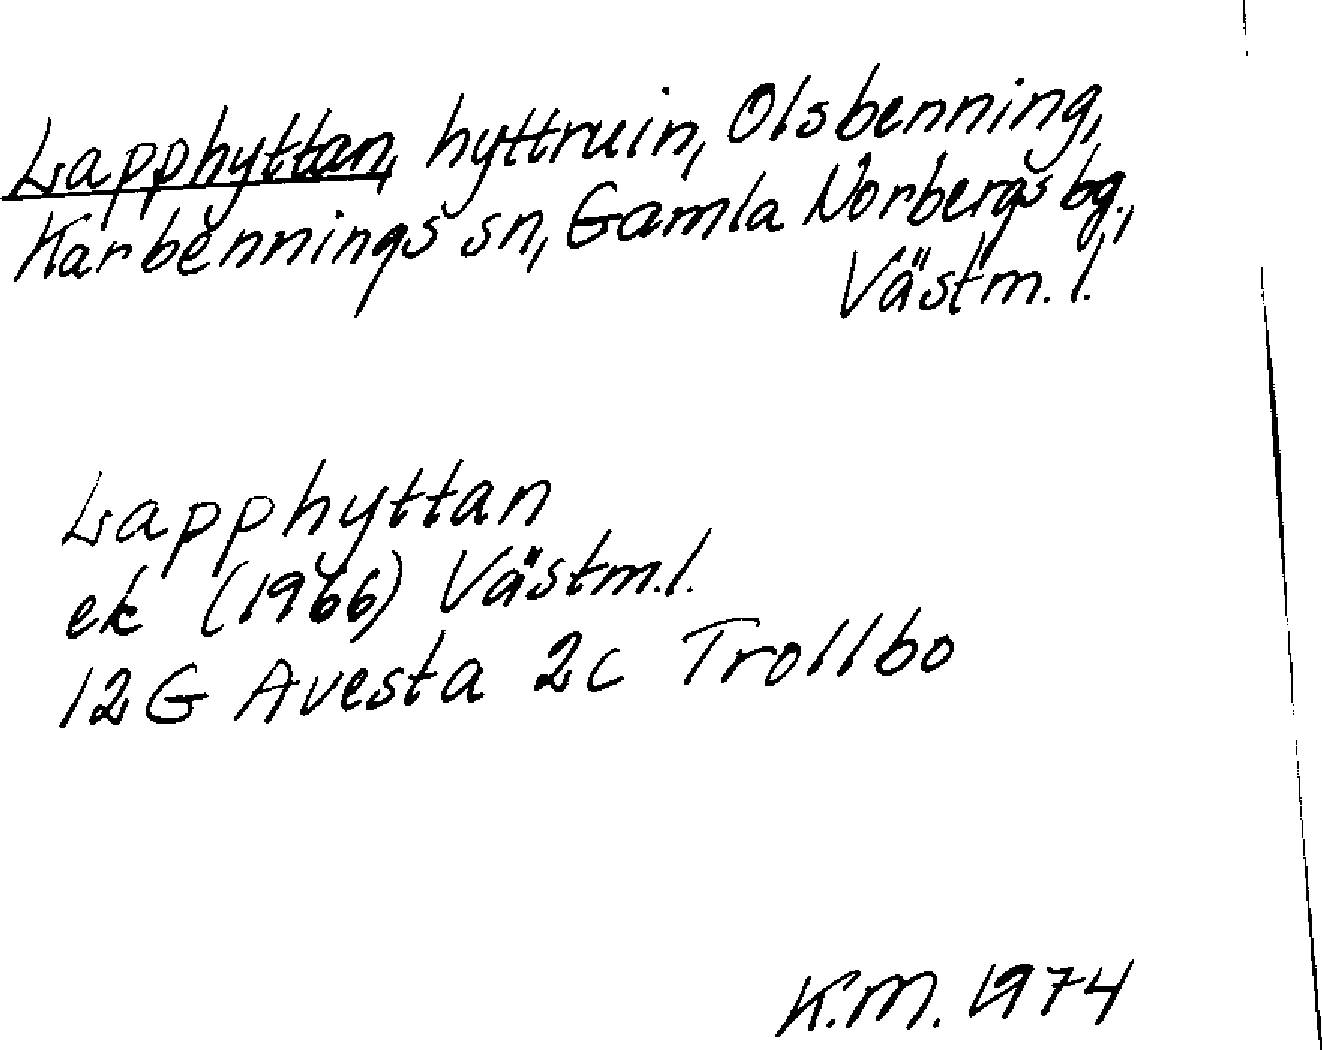 Lapphyttan, hyttruin, Olsbenning,
Karbennings sn, Gamla Norbergs bg.,
Västm. l.
Lapphyttan
ek (1966) Västm.l.
12G Avesta 2c Trollbo
K.M. 1974